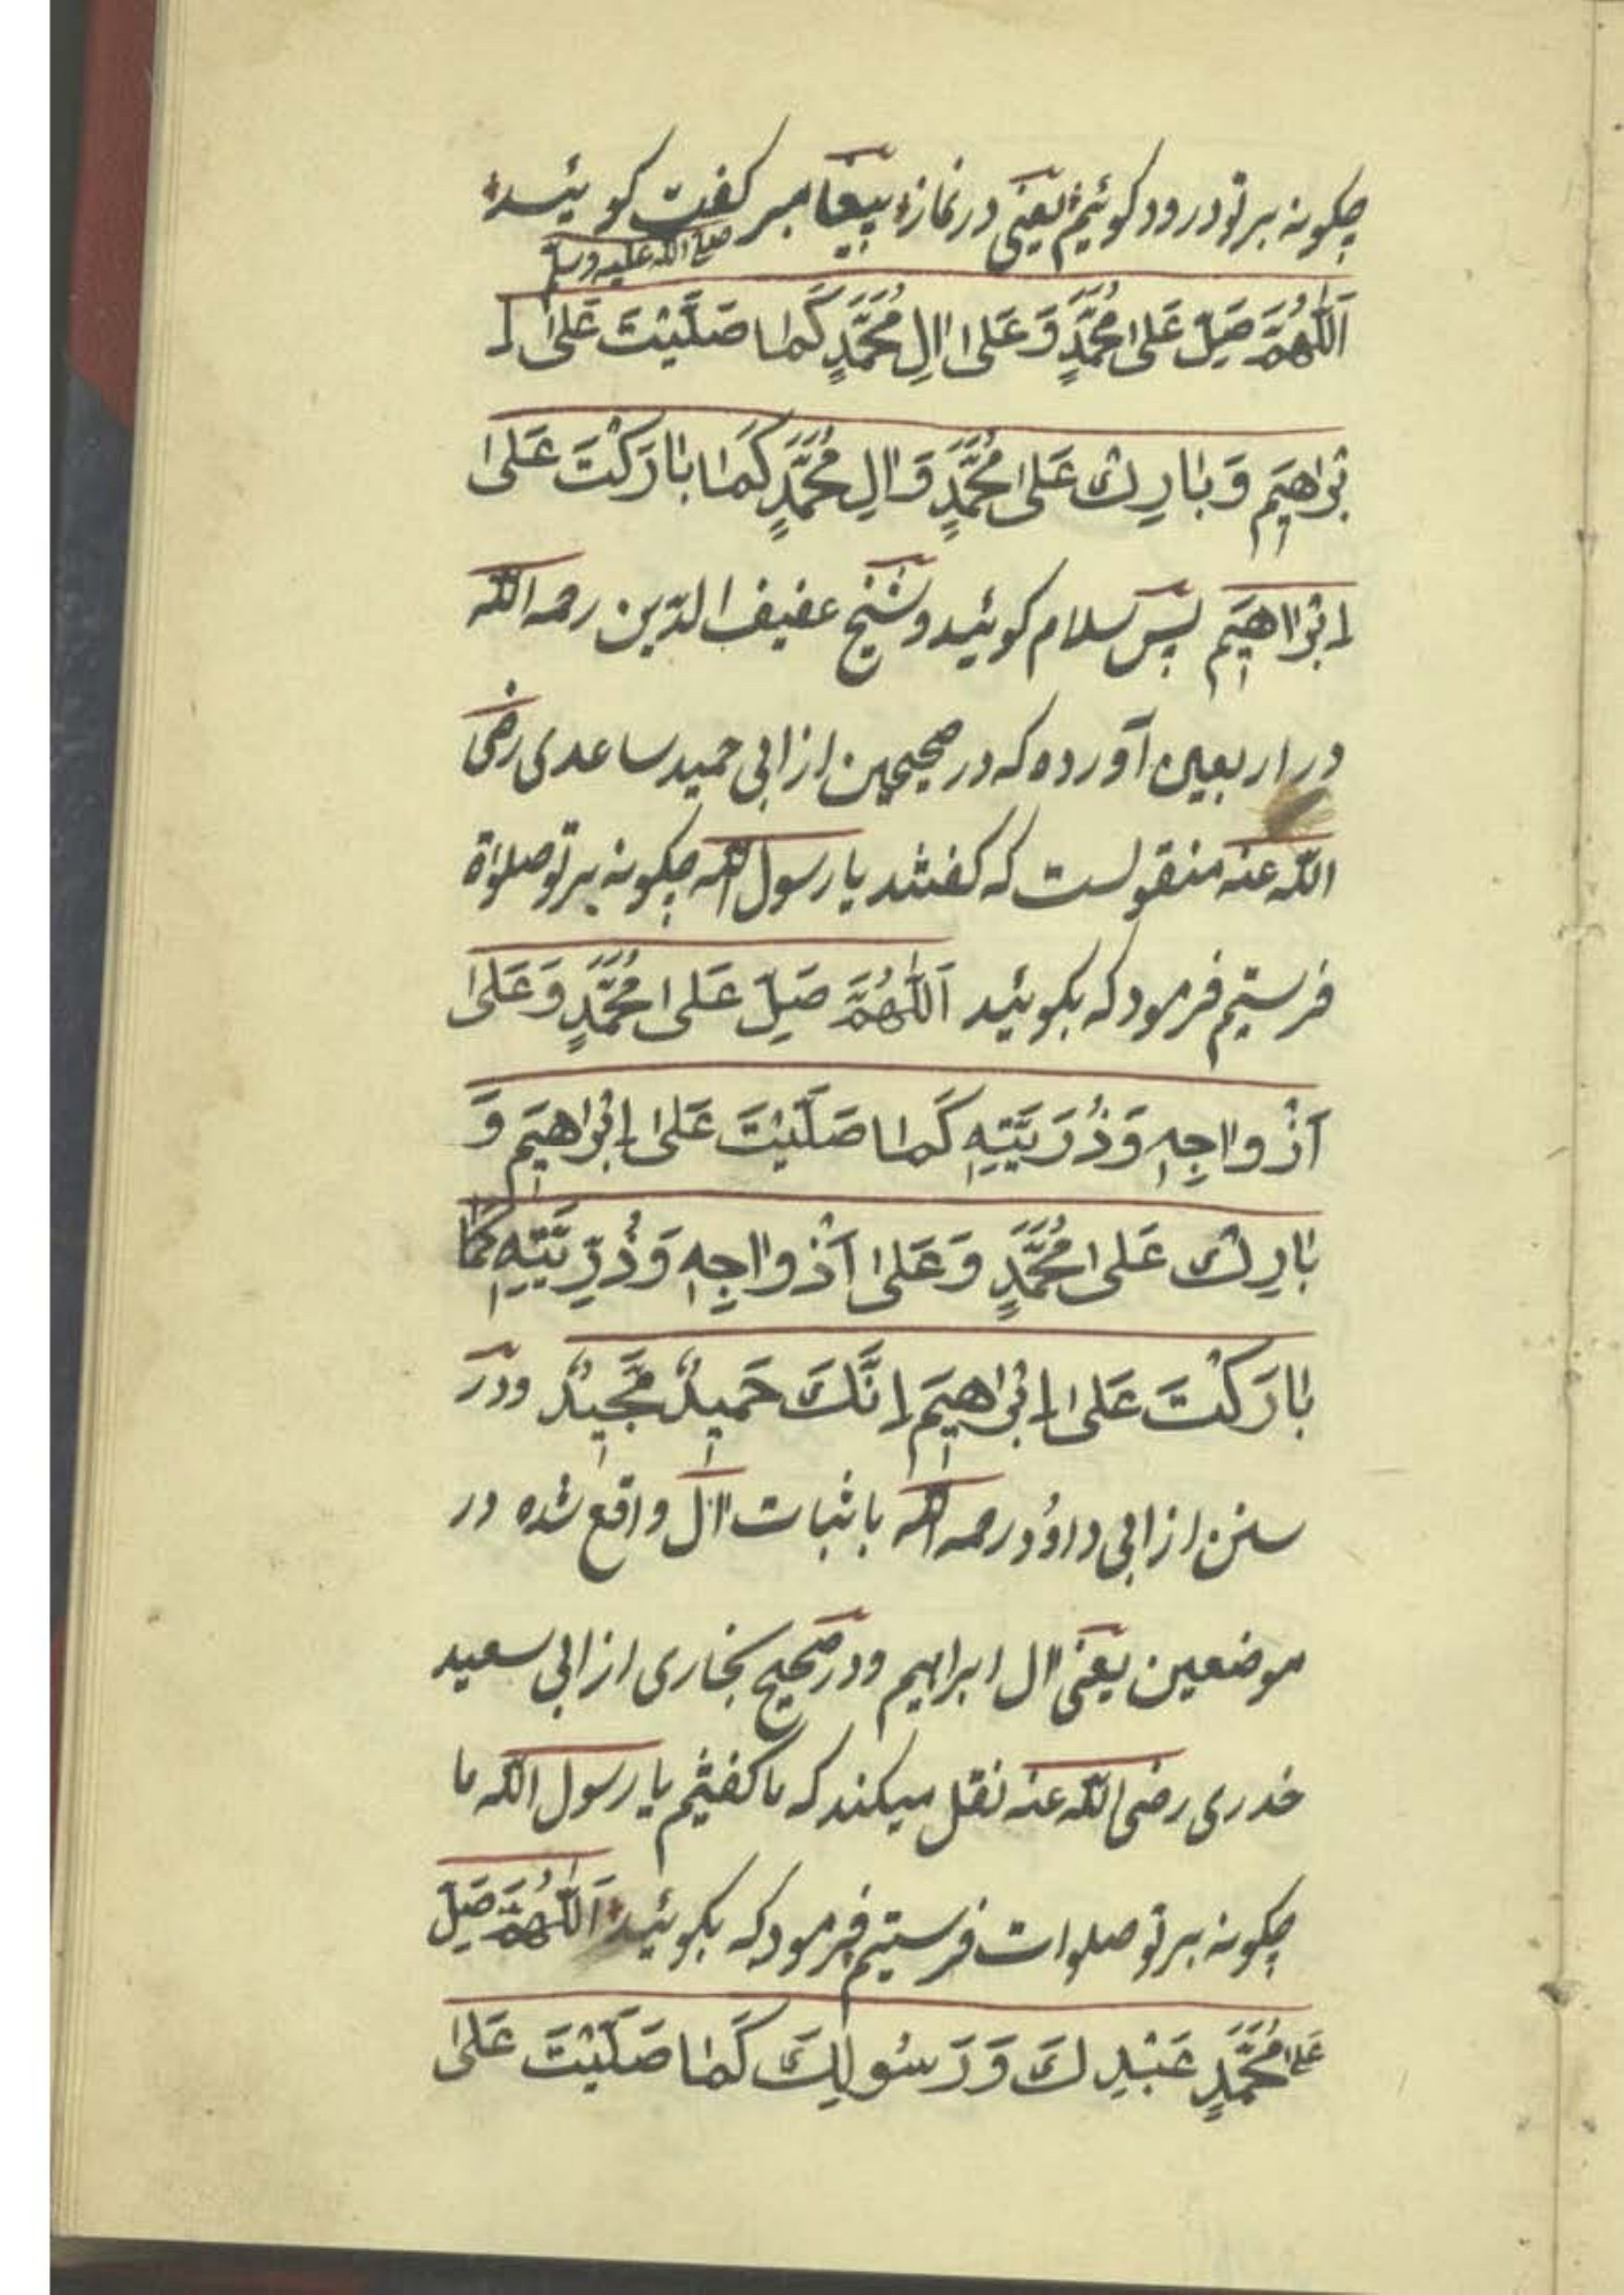 چکونه بر تو درود کوئیم یعنی در نماز پیغامبر کفت کوئید
صلی الله علیه وسلم
اَللّٰهُمَّ صَلِّ عَلیٰ مُحَمَّدٍ وَ عَلیٰ اٰلِ مُحَمَّدٍ کَمٰا صَلَّیْتَ عَلیٰ اِ
بْرٰاهیمَ وَ بٰارِكْ عَلیٰ مُحَمَّدٍ وَ اٰلِ مُحَمَّدٍ کَمٰا بٰارَکْتَ عَلیٰ
اِبْرٰاهیمَ پس سلام کوئید و شیخ عفیف الدّین رحمه الله
در اربعین آورده که در صحیحین از ابی حمید ساعدی رضی
الله عنه منقولست که کفتند یا رسول الله چکونه بر تو صلوٰة
فرستیم فرمود که بکوئید اَللّٰهُمَّ صَلِّ عَلیٰ مُحَمَّدٍ وَ عَلیٰ
اَزْوٰاجِهِ وَ ذُرِّیَّتِهِ کَمٰا صَلَّیْتَ عَلیٰ اِبْرٰاهیمَ وَ
بٰارِكْ عَلیٰ مُحَمَّدٍ وَ عَلیٰ اَزْوٰاجِهِ وَ ذُرِّیَّتِهِ کَمٰا
بٰارَکْتَ عَلیٰ اِبْرٰاهیمَ اِنَّكَ حَمیدٌ مَجیدٌ و در
سنن از ابی داوُد رحمه الله باثبات اٰل واقع شده در
موضعین یعنی اٰل ابراهیم و در صحیح بخاری از ابی سعید
خدری رضی الله عنه نقل میکند که ما کفتیم یا رسول الله ما
چکونه بر تو صلوات فرستیم فرمود که بکوئید اَللّٰهُمَّ صَلِّ
عَلیٰ مُحَمَّدٍ عَبْدِكَ وَ رَسُولِكَ کَمٰا صَلَّیْتَ عَلیٰ